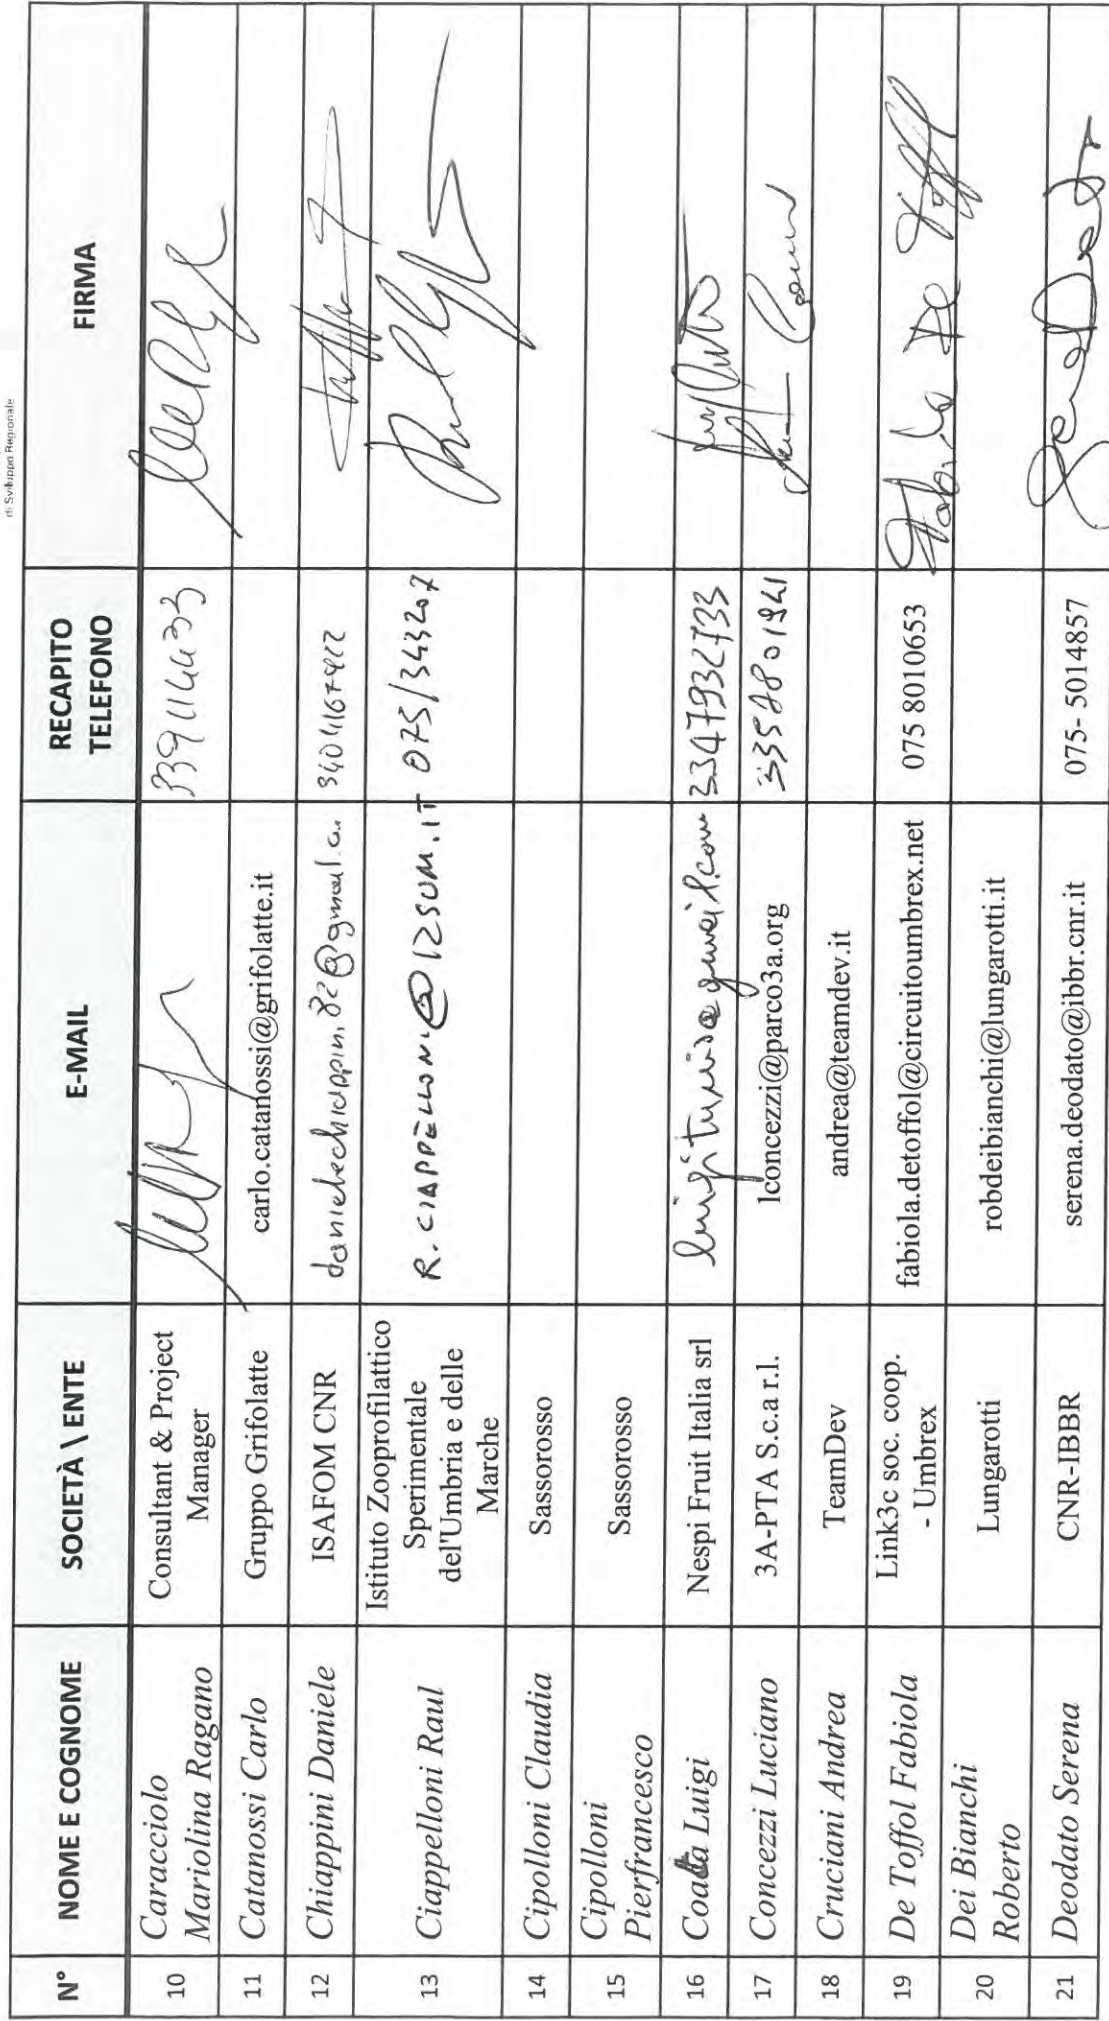 di Sviluppo Regionale
N° NOME E COGNOME SOCIETÀ \ ENTE E-MAIL RECAPITO TELEFONO FIRMA
10 Caracciolo Mariolina Ragano Consultant & Project Manager 3391144633
11 Catanossi Carlo Gruppo Grifolatte carlo.catanossi@grifolatte.it
12 Chiappini Daniele ISAFOM CNR
13 Ciappelloni Raul Istituto Zooprofilattico Sperimentale del'Umbria e delle Marche R. CIAPPELLONI@IZSUM.IT 075/343207
14 Cipolloni Claudia Sassorosso
15 Cipolloni Pierfrancesco Sassorosso
16 Luigi Nespi Fruit Italia srl 3347932733
17 Concezzi Luciano 3A-PTA S.c.a r.l. lconcezzi@parco3a.org 3357801941
18 Cruciani Andrea TeamDev andrea@teamdev.it
19 De Toffol Fabiola Link3c soc. coop. - Umbrex fabiola.detoffol@circuitoumbrex.net 075 8010653 Fabiola De Toffol
20 Dei Bianchi Roberto Lungarotti robdeibianchi@lungarotti.it
21 Deodato Serena CNR-IBBR serena.deodato@ibbr.cnr.it 075- 5014857